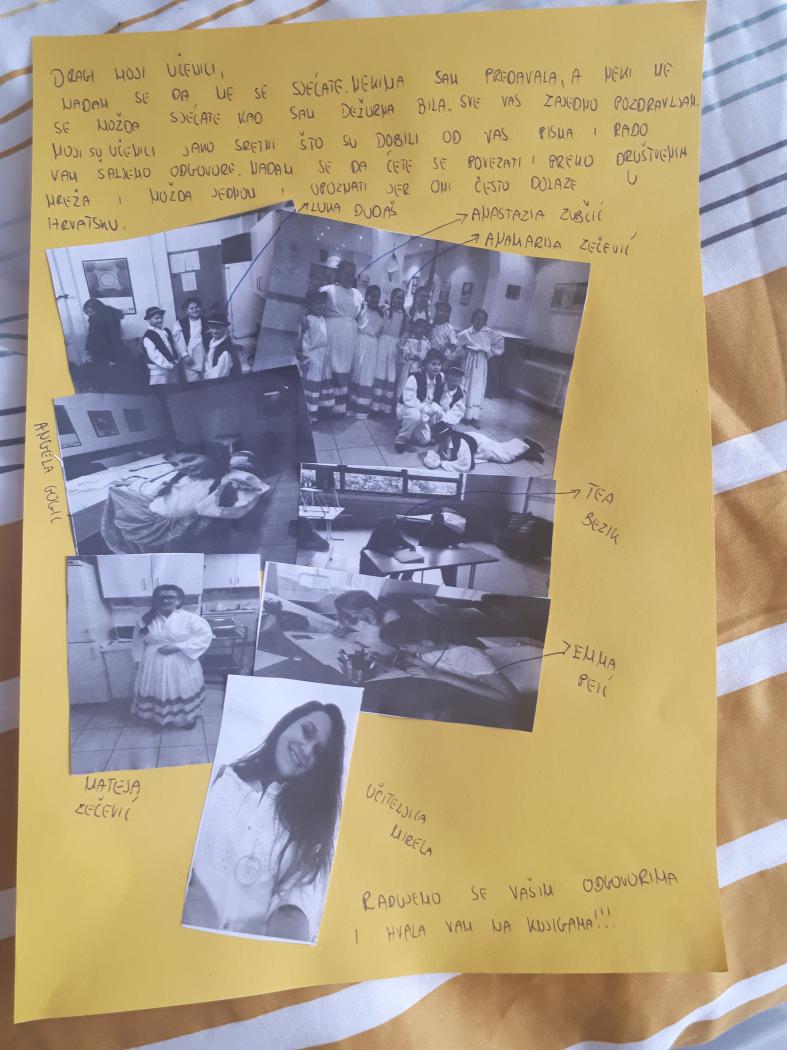 DRAGI MOJI UČENICI,
NADAM SE DA ME SE SJEĆATE. NEKIMA SAM PREDAVALA, A NEKI ME
SE MOŽDA SJEĆATE KAO SAM DEŽURNA BILA. SVE VAS ZAJEDNO POZDRAVLJAM.
MOJI SU UČENICI JAKO SRETNI ŠTO SU DOBILI OD VAS PISMA I RADO
VAM ŠALJEMO ODGOVORE. NADAM SE DA ĆETE SE POVEZATI I PREKO DRUŠTVENIH
MREŽA I MOŽDA JEDNOM I UPOZNATI JER ONI ČESTO DOLAZE U
HRVATSKU.
LUKA DUDAŠ
ANASTAZIA ZUBČIĆ
ANAMARIJA ZEČEVIĆ
ANGELA GOGIĆ
TEA
BEZIK
EMMA
PEIĆ
MATEJA
ZEČEVIĆ
UČITELJICA
MIRELA
RADUJEMO SE VAŠIM ODGOVORIMA
I HVALA VAM NA KNJIGAMA!!!